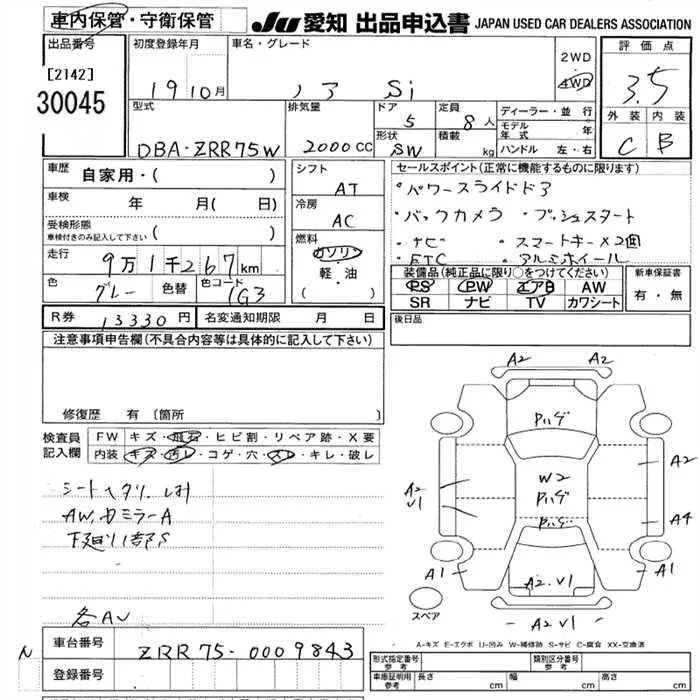 車内保管・守衛保管
JU愛知 出品申込書 JAPAN USED CAR DEALERS ASSOCIATION
出品番号
[2142]
30045
初度登録年月
19 10月
車名・グレード
ノア Si
2WD
4WD
評価点
3.5
外装 内装
C B
型式
DBA-ZRR75W
排気量
2000CC
ドア
5
形状
SW
定員
8人
積載
kg
ディーラー・並行
モデル年式 年
ハンドル 左・右
車歴 自家用・( )
車検 年 月( 日)
受検形態 ・( )
車検付きのみ記入して下さい
走行 9万1千267km
色 グレー 色替 色コード 1G3
シフト
AT
冷房
AC
燃料
ガソリン
軽・油
( )
セールスポイント(正常に機能するものに限ります)
・パワースライドドア
・バックカメラ ・プッシュスタート
・ナビ ・スマートキー×2個
・ETC ・アルミホイール
装備品(純正品に限り○をつけてください)
PS PW エアB AW
SR ナビ TV カワシート
新車保証書
有・無
R券 13330円 名変通知期限 月 日
後日品
注意事項申告欄(不具合内容等は具体的に記入して下さい)
修復歴 有 〔箇所 〕
検査員記入欄
FW キズ・飛石・ヒビ割・リペア跡・X要
内装 キズ・汚レ・コゲ・穴・スレ・キレ・破レ
シートヘタリ
AW、ドミラーA
下廻り1部S
各AU
A2 A2
Pハゲ
A2
V1
W2
Pハゲ
Pハゲ
A2
A4
A1
A2.V1
A1
スペア
A2 V1
A-キズ E-エクボ U-凹み W-補修跡 S-サビ C-腐食 XX-交換済
N
車台番号 ZRR75-0009843
登録番号
形式指定番号 参考
類別区分番号 参考
車庫証明用 参考 長さ cm 幅 cm 高さ cm